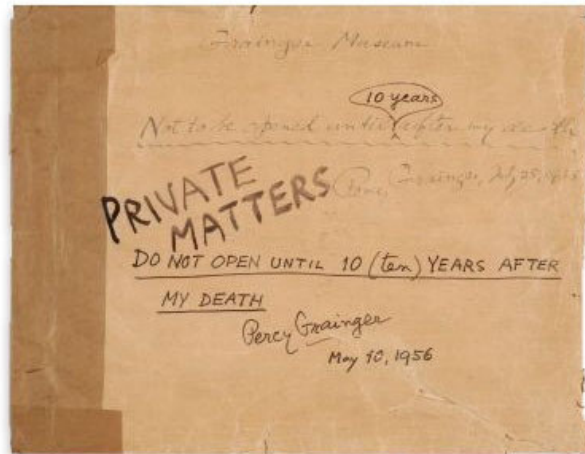 Grainger Museum
10 years
Not to be opened until after my death
Percy Grainger, July 25, 1955
PRIVATE
MATTERS
DO NOT OPEN UNTIL 10 (ten) YEARS AFTER
MY DEATH
Percy Grainger
May 10, 1956